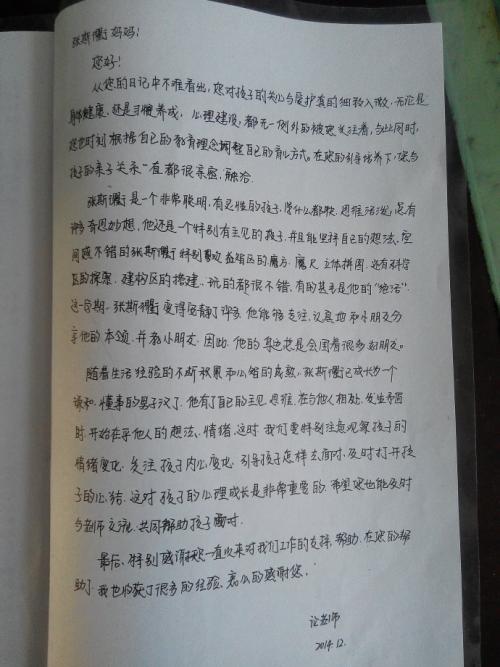 张斯衢妈妈！
您好！
从您的日记中不难看出，您对孩子的关心与爱护真的细致入微，无论是
身体健康，还是习惯养成，心理建设，都无一例外的被您关注着，与此同时，
您也时刻根据自己的教育理念调整自己的育儿方式。在您的引导培养下，您与
孩子的亲子关系一直都很亲密，融洽。
张斯衢是一个非常聪明，有灵性的孩子，学什么都快，思维活泼，总有
许多奇思妙想，他还是一个特别有主见的孩子，并且能坚持自己的想法，空
间感不错的张斯衢特别喜欢益智区的魔方、魔尺、立体拼图，还有科学
区的探索，建构区的搭建，玩的都很不错，有的甚至是他的“绝活”。
这一学期，张斯衢变得安静了许多，他能够专注，认真地和小朋友分
享他的本领，并教小朋友，因此，他的身边总是会围着很多好朋友。
随着生活经验的不断积累和心智的成熟，张斯衢已成长为一个
谦和、懂事的男子汉了，他有了自己的主见、思维，在与他人相处，发生矛盾
时，开始在乎他人的想法、情绪，这时，我们更特别注意观察孩子的
情绪变化，关注孩子内心变化，引导孩子怎样去面对，及时打开孩
子的心结，这对孩子的心理成长是非常重要的，希望您也能及时
与老师交流，共同帮助孩子面对。
最后，特别感谢您一直以来对我们工作的支持、帮助，在您的帮
助下，我也收获了很多的经验，衷心的感谢您。
老师
2014.12.